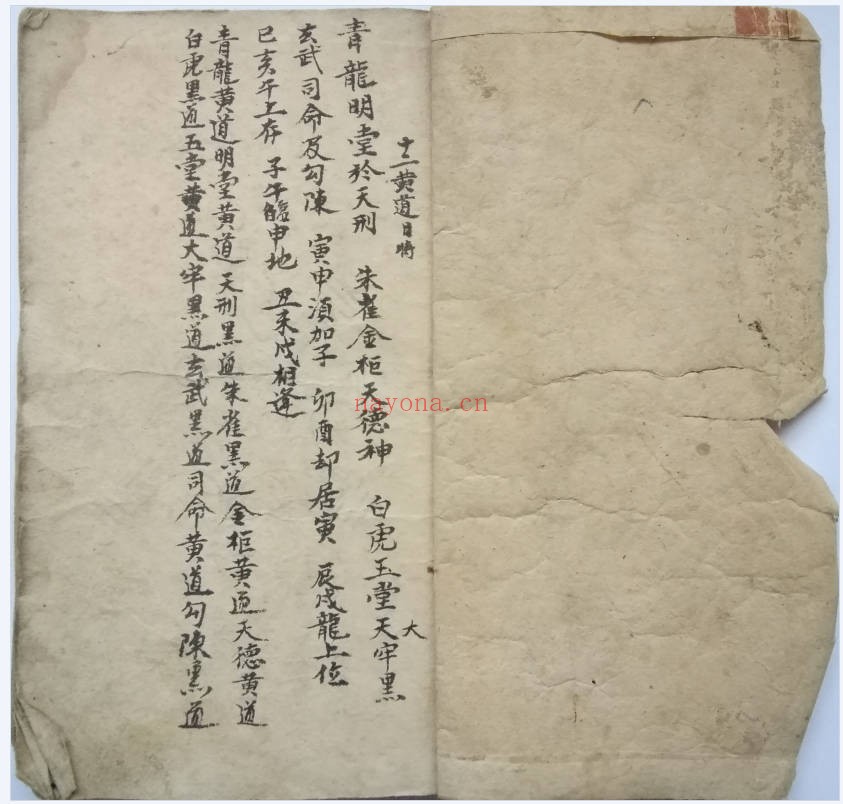 十二黄道日時
青龍明堂於天刑 朱雀金柜天德神 白虎玉堂天牢黑
大
玄武司命及勾陳 寅申須加子 卯酉却居寅 辰戌龍上位
巳亥午上存 子午臨申地 丑未戌相逢
青龍黄道明堂黄道天刑黑道朱雀黑道金柜黄道天德黄道
白虎黑道五堂黄道大牢黑道玄武黑道司命黄道勾陳黑道
nayona.cn